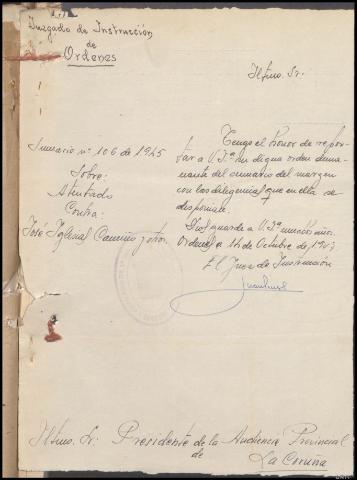 Juzgado de Instrucción
de
Ordenes
Iltmo. Sr.
Sumario nº 106 de 1945
Sobre:
Atentado
Contra:
José Iglesias Camiño y otros
Tengo el honor de repor-
tar a V. Iª su digna orden dima-
nante del sumario del margen
con las diligencias que en ella se
desponiate.
Dios guarde a V. Iª muchos años.
Ordenes a 14 de Octubre de
El Juez de Instrucción
Iltmo. Sr. Presidente de la Audiencia Provincial
de
La Coruña